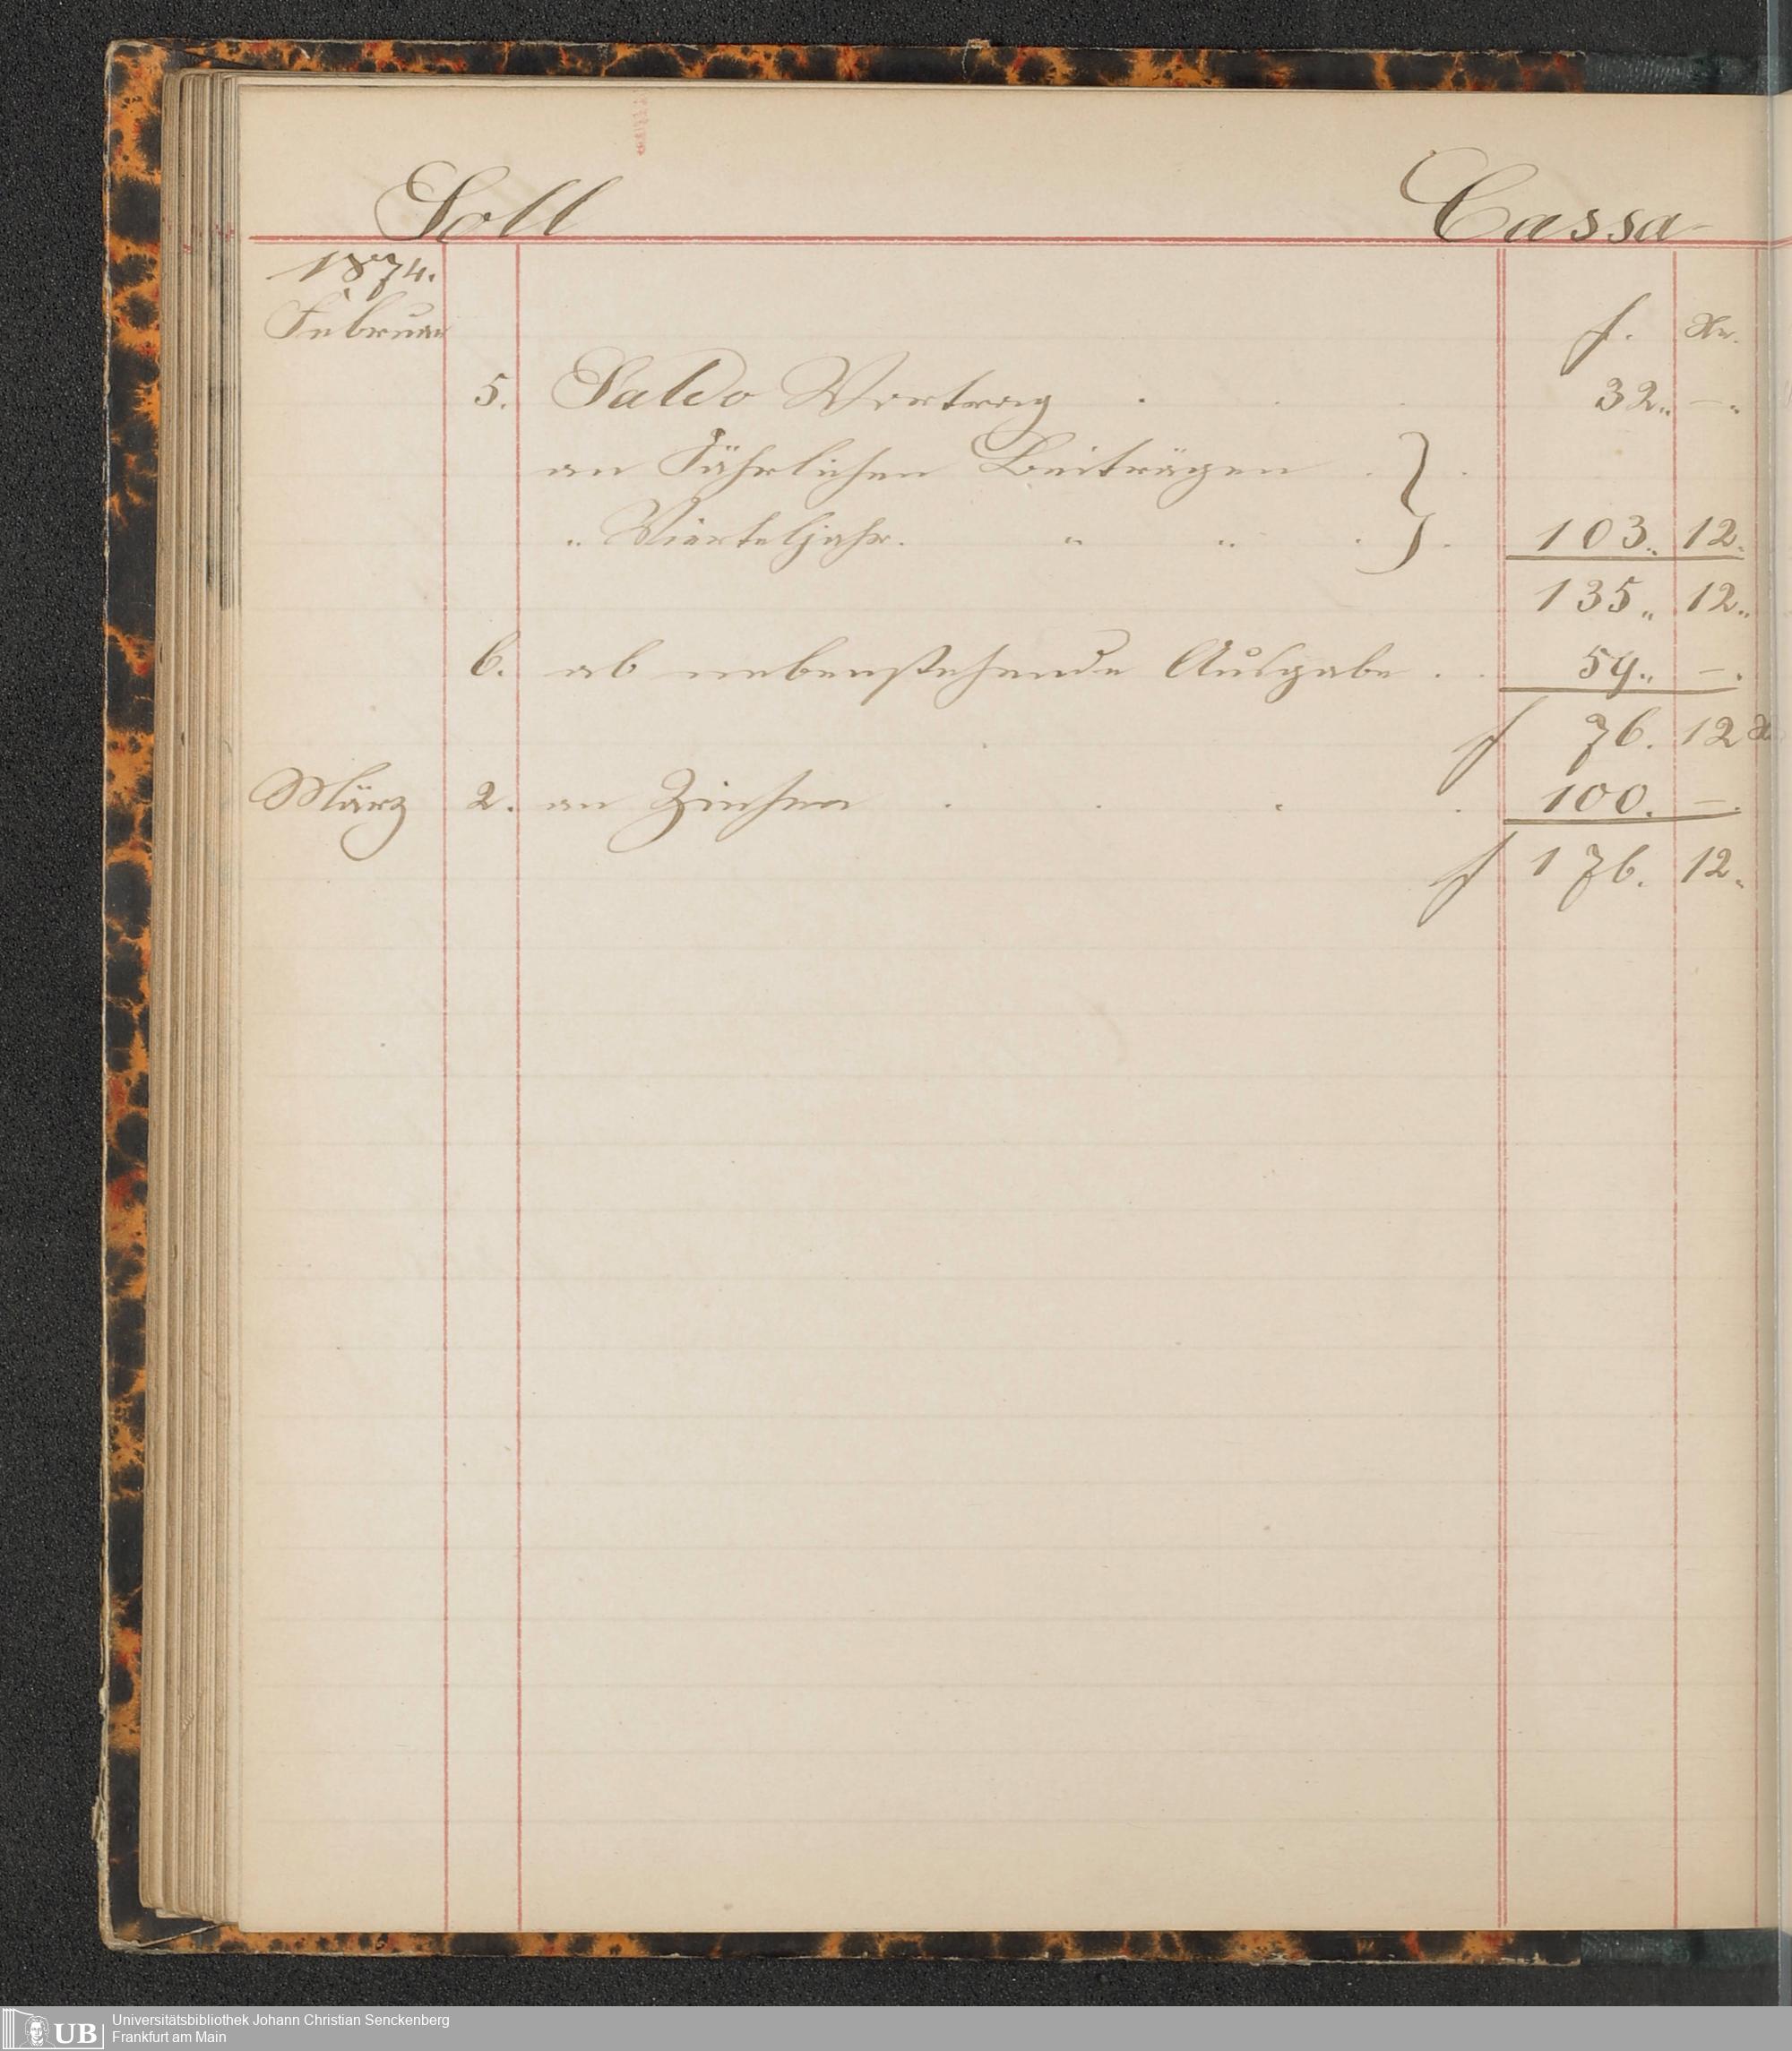 Soll Cassa
1874.
Februar f. Xr.
5. Saldo Vortrag . . . 32„ —„
an Jährlichen Beiträgen . } .
„ Vierteljahr. „ „ . } . 103„ 12„
135„ 12„
6. ab nebenstehende Ausgabe . . 59„ —.
f 76. 12 X
März 2. an Zinsen . . . . 100. —.
f 176. 12„
UB
Universitätsbibliothek Johann Christian Senckenberg
Frankfurt am Main